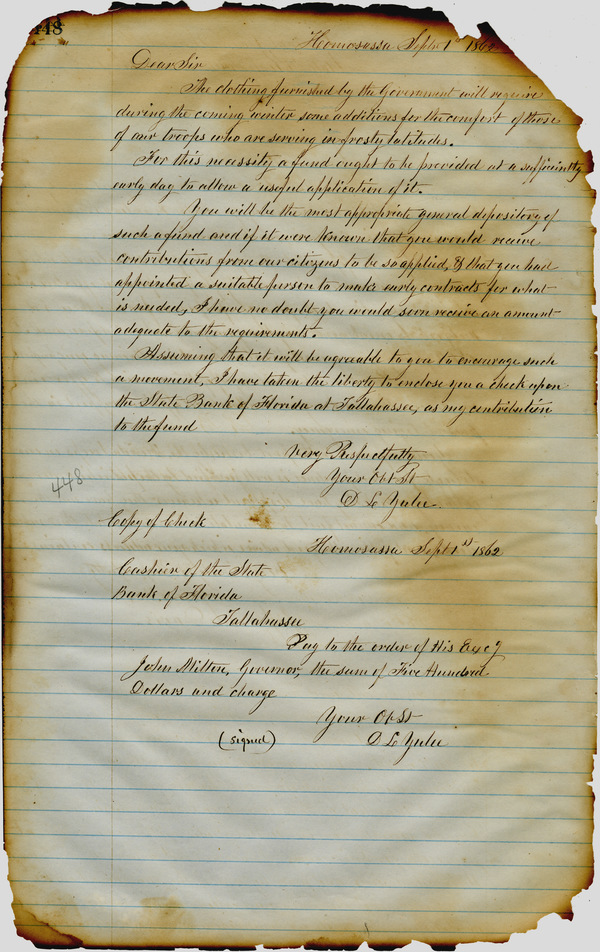 448
Homosassa Septr 1st 1862
Dear Sir
The clothing furnished by the Government will require
during the coming winter some additions for the comfort of those
of our troops who are serving in frosty latitudes.
For this necessity a fund ought to be provided at a sufficiently
early day to allow a useful application of it.
You will be the most appropriate general depository of
such a fund and if it were known that you would receive
contributions from our citizens to be so applied, & that you had
appointed a suitable person to make early contracts for what
is needed, I have no doubt you would soon receive an amount
adequate to the requirements.
Assuming that it will be agreeable to you to encourage such
a movement, I have taken the liberty to enclose you a check upon
the State Bank of Florida at Tallahassee, as my contribution
to the fund
Very Respectfully
Your Obt St
D L Yulee
448
Copy of Check
Homosassa Sept 1st 1862
Cashier of the State
Bank of Florida
Tallahassee
Pay to the order of His Excy
John Milton, Governor, the sum of Five Hundred
Dollars and charge
Your Ob St
(signed) D L Yulee